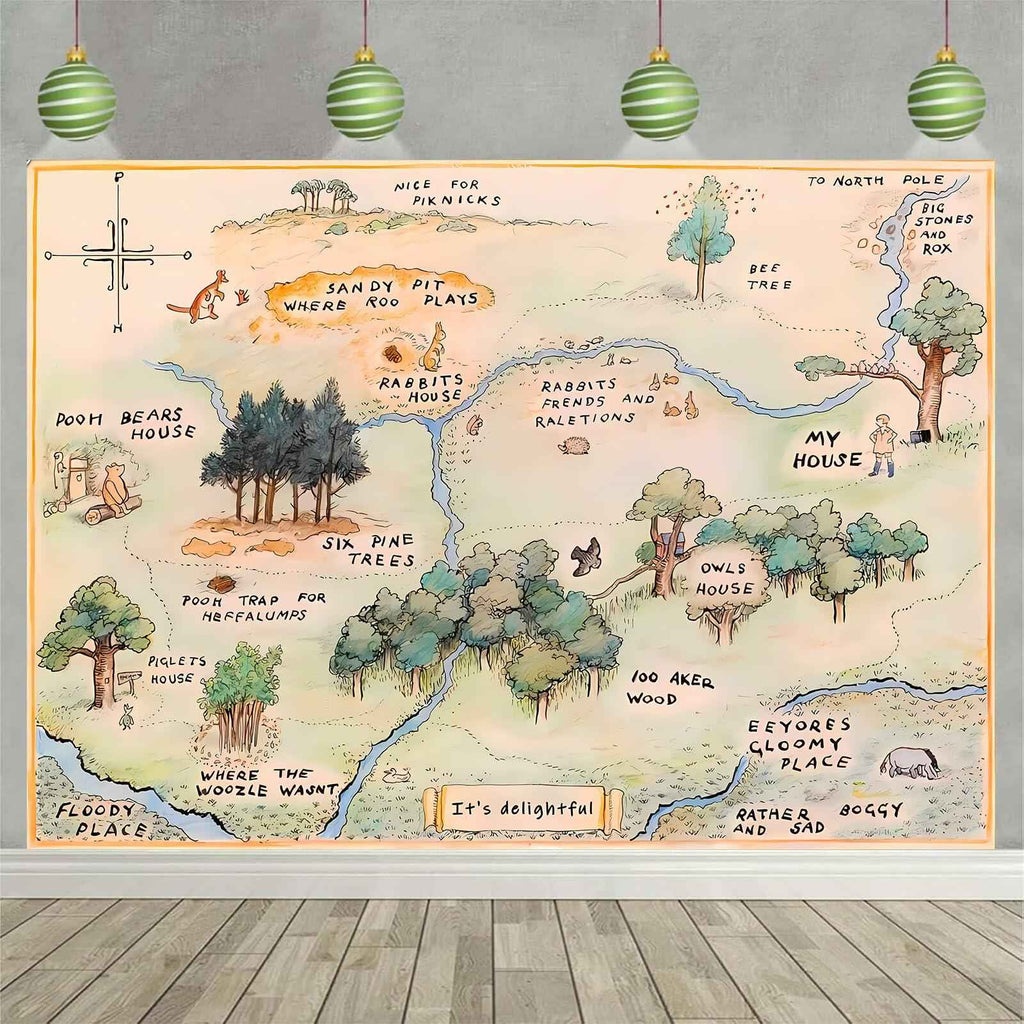 P
O O
H
NICE FOR
PIKNICKS
TO NORTH POLE
BIG
STONES
AND
ROX
BEE
TREE
SANDY PIT
WHERE ROO PLAYS
RABBITS
HOUSE
RABBITS
FRENDS AND
RALETIONS
POOH BEARS
HOUSE
MY
HOUSE
SIX PINE
TREES
OWLS
HOUSE
POOH TRAP FOR
HEFFALUMPS
PIGLETS
HOUSE
100 AKER
WOOD
EEYORES
GLOOMY
PLACE
WHERE THE
WOOZLE WASNT
FLOODY
PLACE
It's delightful
RATHER BOGGY
AND SAD